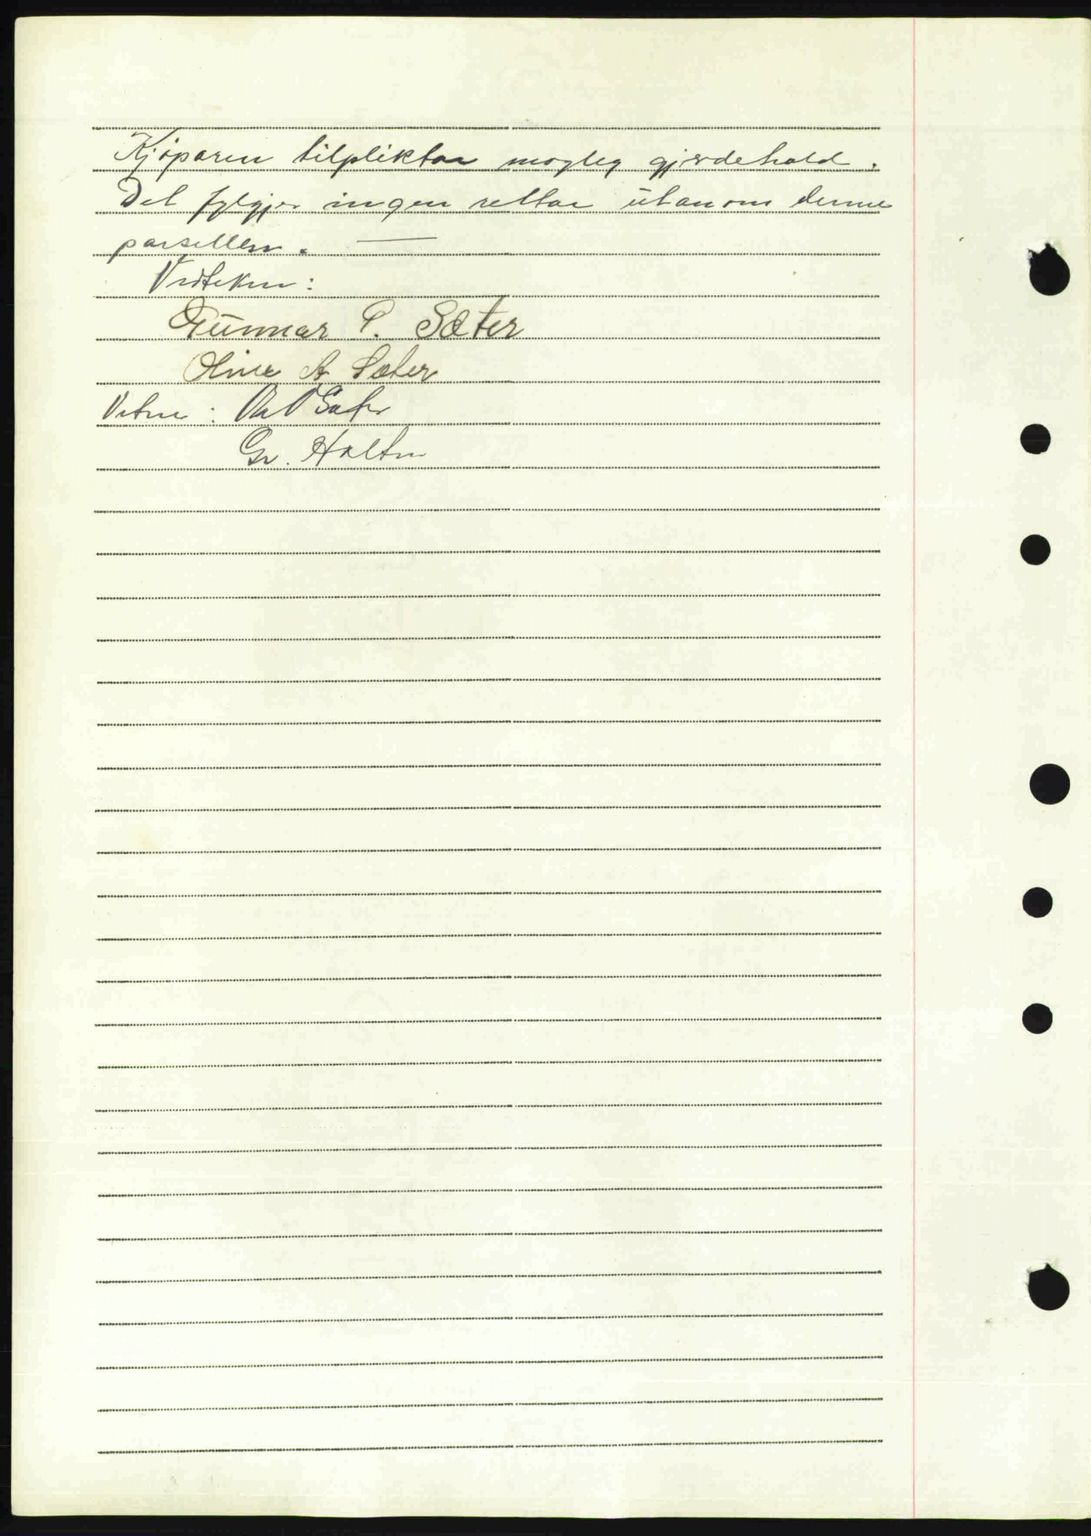 Kjöparen tilpliktar mogleg gjerdehald.
Det fylgjer ingen rettar utanom denne
parsellen. —
Vedteken:
Gunnar P. Sæter
Oline A Sæter
Vitne: Ola P Sæter
Gr. Holten